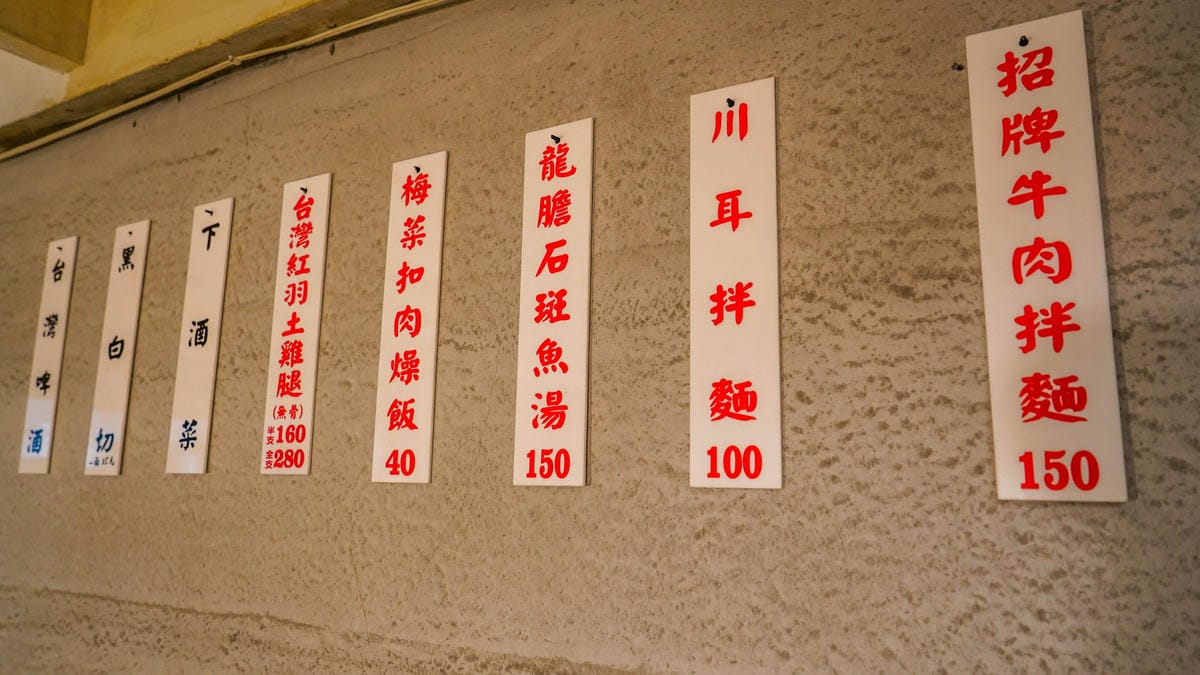 招牌牛肉拌麵
150
川耳拌麵
100
龍膽石斑魚湯
150
梅菜扣肉燥飯
40
台灣紅羽土雞腿
(無骨)
半支160
全支280
下酒菜
黑白切
台灣啤酒